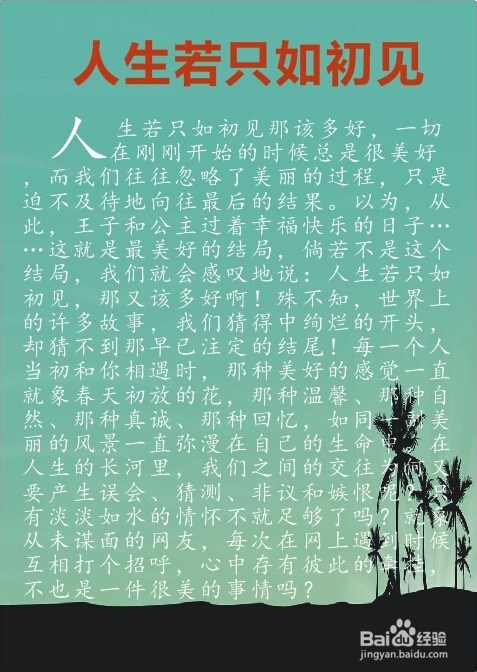 人生若只如初见
人生若只如初见那该多好，一切
在刚刚开始的时候总是很美好
，而我们往往忽略了美丽的过程，只是
迫不及待地向往最后的结果。以为，从
此，王子和公主过着幸福快乐的日子…
…这就是最美好的结局，倘若不是这个
结局，我们就会感叹地说：人生若只如
初见，那又该多好啊！殊不知，世界上
的许多故事，我们猜得中绚烂的开头，
却猜不到那早已注定的结尾！每一个人
当初和你相遇时，那种美好的感觉一直
就象春天初放的花，那种温馨、那种自
然、那种真诚、那种回忆，如同一副美
丽的风景一直弥漫在自己的生命中。在
人生的长河里，我们之间的交往为何又
要产生误会、猜测、非议和嫉恨呢？只
有淡淡如水的情怀不就足够了吗？就象
从未谋面的网友，每次在网上遇到时候
互相打个招呼，心中存有彼此的牵挂，
不也是一件很美的事情吗？
Baidu经验
jingyan.baidu.com